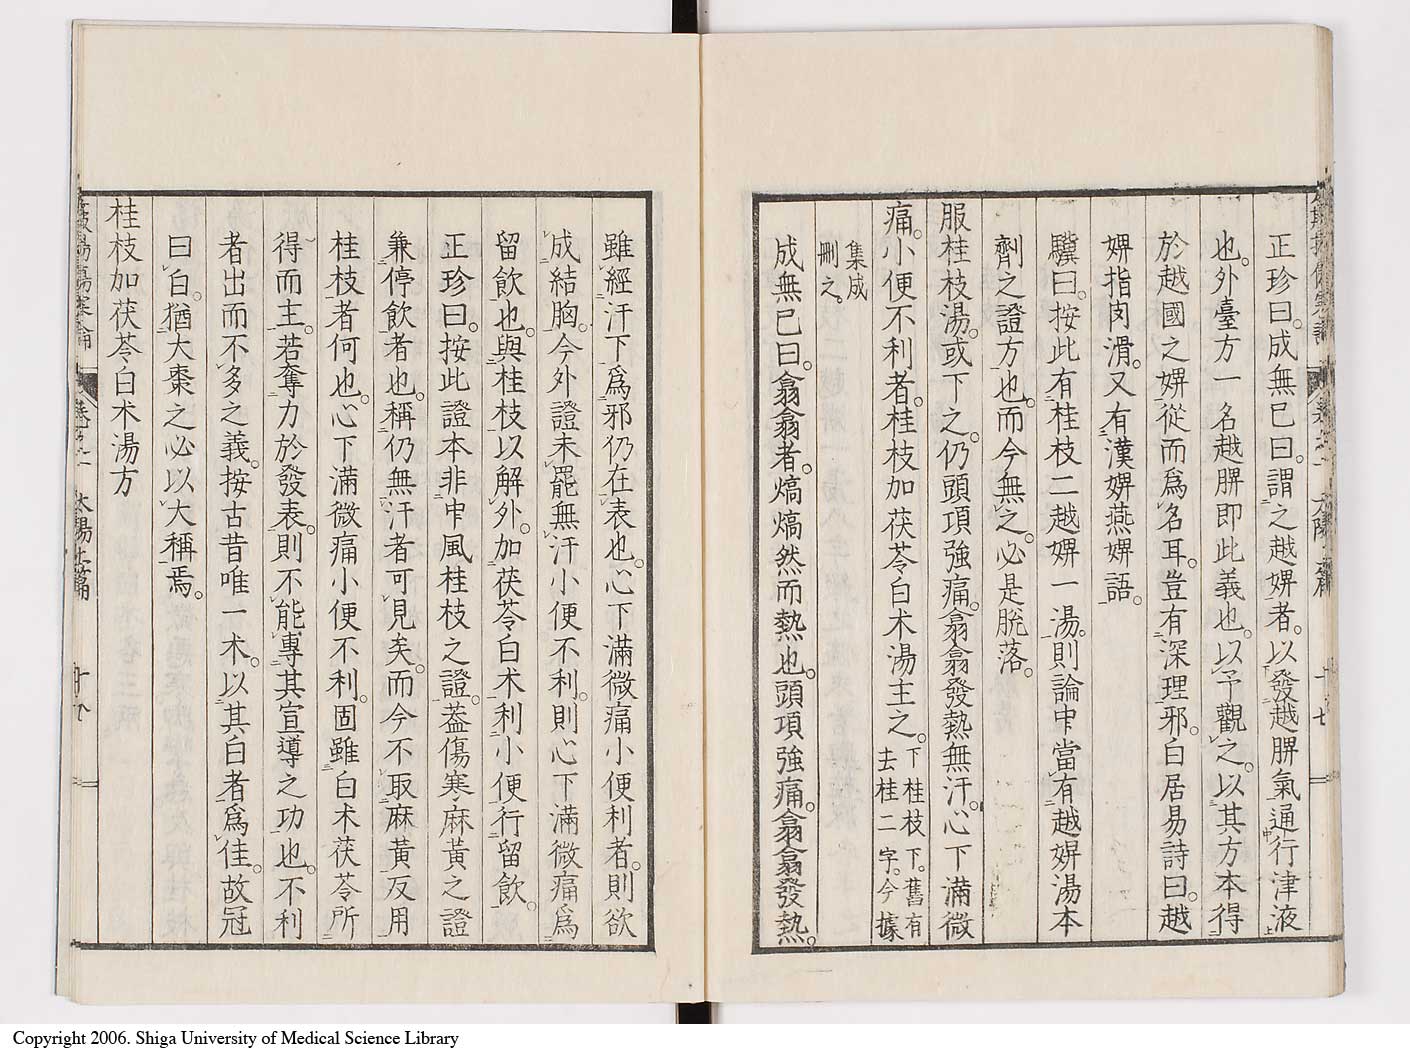 正珍曰。成無已曰。謂之越婢者。以發越脾氣通行津液
也。外臺方一名越脾即此義也。以予觀之。以其方本得
於越國之婢從而爲名耳。豈有深理邪。白居易詩曰。越
婢指肉滑。又有漢婢燕婢語。
驥曰。按此有桂枝二越婢一湯。則論中當有越婢湯本
劑之證方也。而今無之。必是脫落。
服桂枝湯。或下之。仍頭項強痛。翕翕發熱無汗。心下滿微
痛。小便不利者。桂枝加茯苓白术湯主之。下桂枝下。舊有
去桂二字。今據
集成
刪之。
成無已曰。翕翕者。熇熇然而熱也。頭項強痛。翕翕發熱。
雖經汗下爲邪仍在表也。心下滿微痛小便利者。則欲
成結胸。今外證未罷無汗小便不利。則心下滿微痛爲
留飲也。與桂枝以解外。加茯苓白术利小便行留飲。
正珍曰。按此證本非中風桂枝之證。葢傷寒麻黃之證
兼停飲者也。稱仍無汗者可見矣。而今不取麻黃反用
桂枝者何也。心下滿微痛小便不利。固雖白术茯苓所
得而主。若奪力於發表。則不能專其宣導之功也。不利
者出而不多之義。按古昔唯一术。以其白者爲佳。故冠
曰白。猶大棗之必以大稱焉。
桂枝加茯苓白术湯方
太陽上篇 十八
Copyright 2006. Shiga University of Medical Science Library